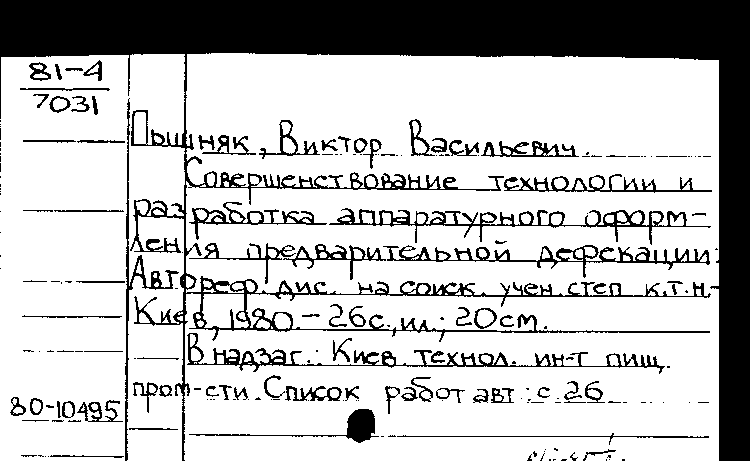 81-4
7031
Пышняк, Виктор Васильевич.
Совершенствование технологии и
разработка аппаратурного оформ-
ления предварительной дефекации:
Автореф. дис. на соиск. учен. степ к.т.н.-
Киев, 1980.- 26с., ил.; 20см.
В надзаг.: Киев. технол. ин-т пищ.
пром-сти. Список работ авт: с. 26
80-10495